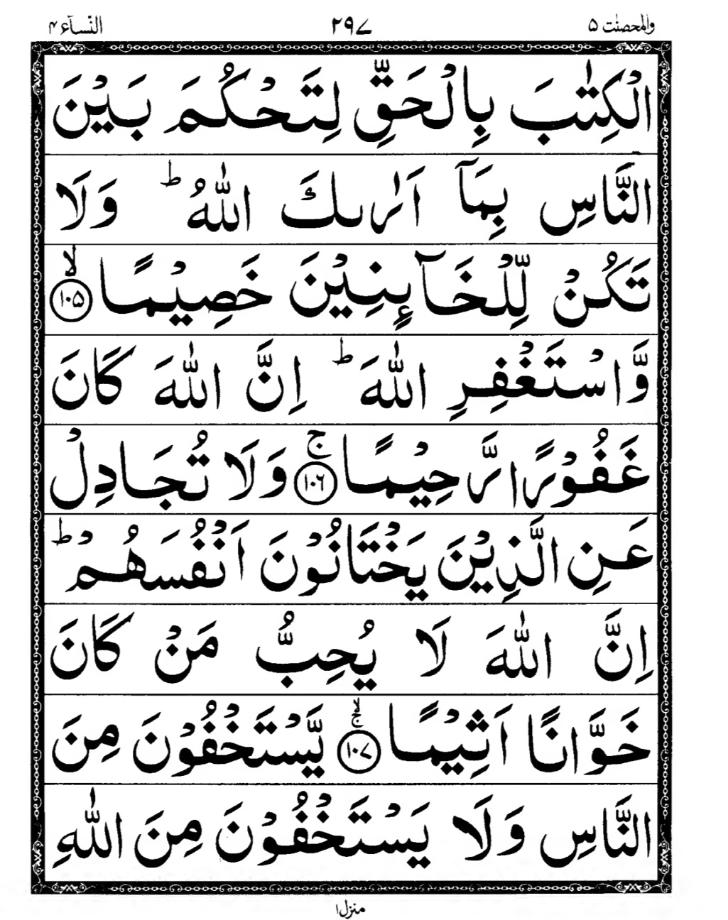 والمحصنٰت ۵ ۲۹۷ النسآء ۴
الْكِتٰبَ بِالْحَقِّ لِتَحْكُمَ بَيْنَ
النَّاسِ بِمَآ اَرٰىكَ اللّٰهُ ؕ وَلَا
تَكُنْ لِّلْخَآىِٕنِيْنَ خَصِيْمًا ۙ‏﴿۱۰۵﴾
وَّاسْتَغْفِرِ اللّٰهَ ؕ اِنَّ اللّٰهَ كَانَ
غَفُوْرًا رَّحِيْمًا ۚ‏﴿۱۰۶﴾ وَلَا تُجَادِلْ
عَنِ الَّذِيْنَ يَخْتَانُوْنَ اَنْفُسَهُمْ ؕ
اِنَّ اللّٰهَ لَا يُحِبُّ مَنْ كَانَ
خَوَّانًا اَثِيْمًا ۙۚ‏﴿۱۰۷﴾ يَّسْتَخْفُوْنَ مِنَ
النَّاسِ وَلَا يَسْتَخْفُوْنَ مِنَ اللّٰهِ
منزل۱